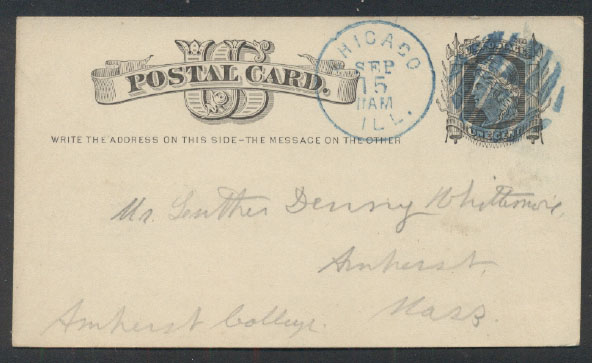 US
POSTAL CARD.
CHICAGO
SEP
15
11AM
ILL.
ONE CENT
WRITE THE ADDRESS ON THIS SIDE-THE MESSAGE ON THE OTHER
Mr. Luther Denny Whittemore,
Amherst,
Mass.
Amherst College.